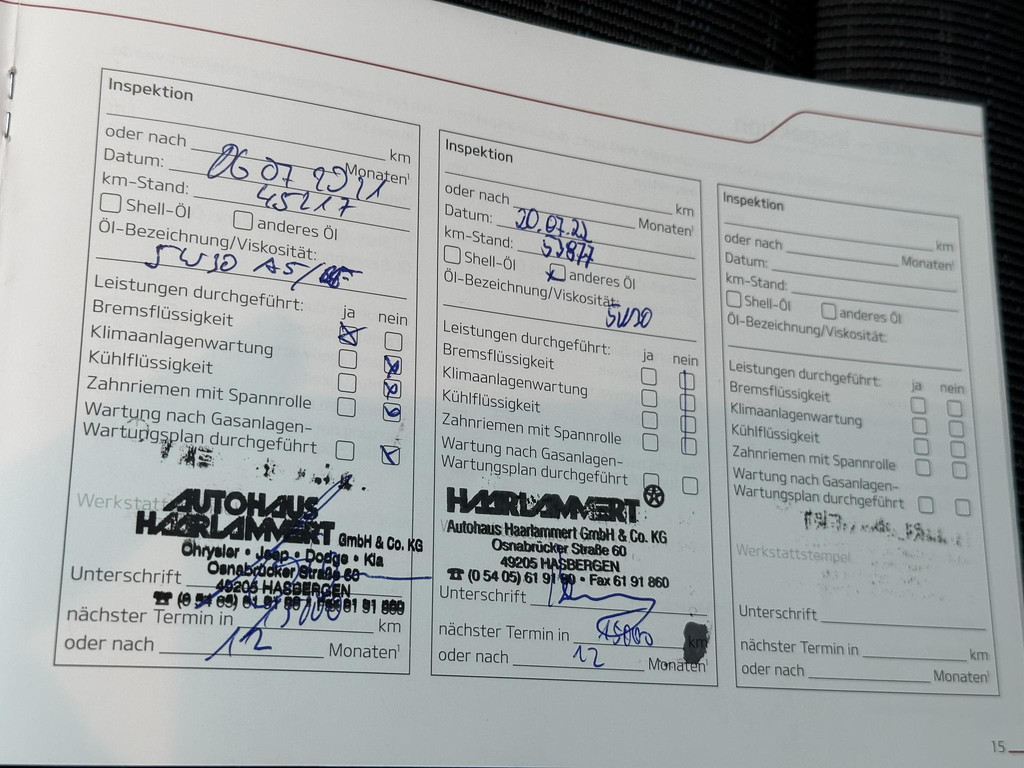 Inspektion
oder nach km
Monaten¹
Datum: 06 07 2021
km-Stand: 45217
Shell-Öl anderes Öl
Öl-Bezeichnung/Viskosität:
5W30 A5/
Leistungen durchgeführt: ja nein
Bremsflüssigkeit
Klimaanlagenwartung
Kühlflüssigkeit
Zahnriemen mit Spannrolle
Wartung nach Gasanlagen-
Wartungsplan durchgeführt
Werkstatt
AUTOHAUS
HAARLAMMERT GmbH & Co. KG
Chrysler • Jeep • Dodge • Kia
Osnabrücker Straße 60
49205 HASBERGEN
Unterschrift
☎ (0 54 05) 61 91 90 • Fax 61 91 860
nächster Termin in 15000 km
oder nach 12 Monaten¹
Inspektion
km
oder nach Monaten¹
Datum: 20.07.22
km-Stand: 53877
Shell-Öl anderes Öl
Öl-Bezeichnung/Viskosität:
5W30
Leistungen durchgeführt: ja nein
Bremsflüssigkeit
Klimaanlagenwartung
Kühlflüssigkeit
Zahnriemen mit Spannrolle
Wartung nach Gasanlagen-
Wartungsplan durchgeführt
HAARLAMMERT
Autohaus Haarlammert GmbH & Co. KG
Osnabrücker Straße 60
49205 HASBERGEN
☎ (0 54 05) 61 91 90 • Fax 61 91 860
Unterschrift
nächster Termin in 15000 km
oder nach 12 Monaten¹
Inspektion
km
oder nach Monaten¹
Datum:
km-Stand:
Shell-Öl anderes Öl
Öl-Bezeichnung/Viskosität:
Leistungen durchgeführt: ja nein
Bremsflüssigkeit
Klimaanlagenwartung
Kühlflüssigkeit
Zahnriemen mit Spannrolle
Wartung nach Gasanlagen-
Wartungsplan durchgeführt
Werkstattstempel
Unterschrift
nächster Termin in km
oder nach Monaten¹
15